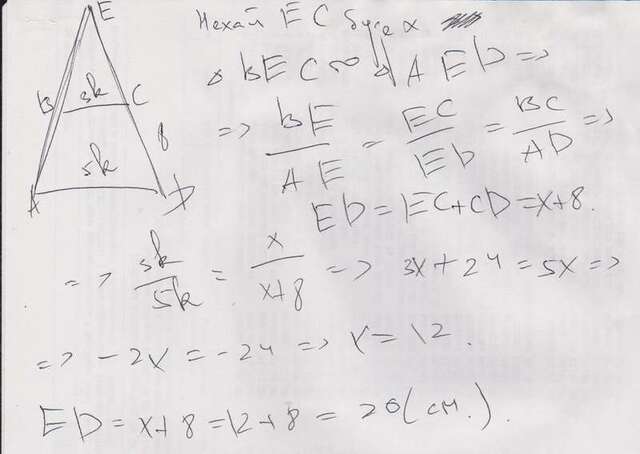 Нехай EC буде x
E
B 3k C
8
5k
A D
△ BEC ∾ △ AED =>
=> BE/AE = EC/ED = BC/AD =>
ED = EC+CD = x+8.
=> 3k/5k = x/x+8 => 3x+24=5x =>
=> -2x = -24 => x = 12.
ED = x+8 = 12+8 = 20(см.).